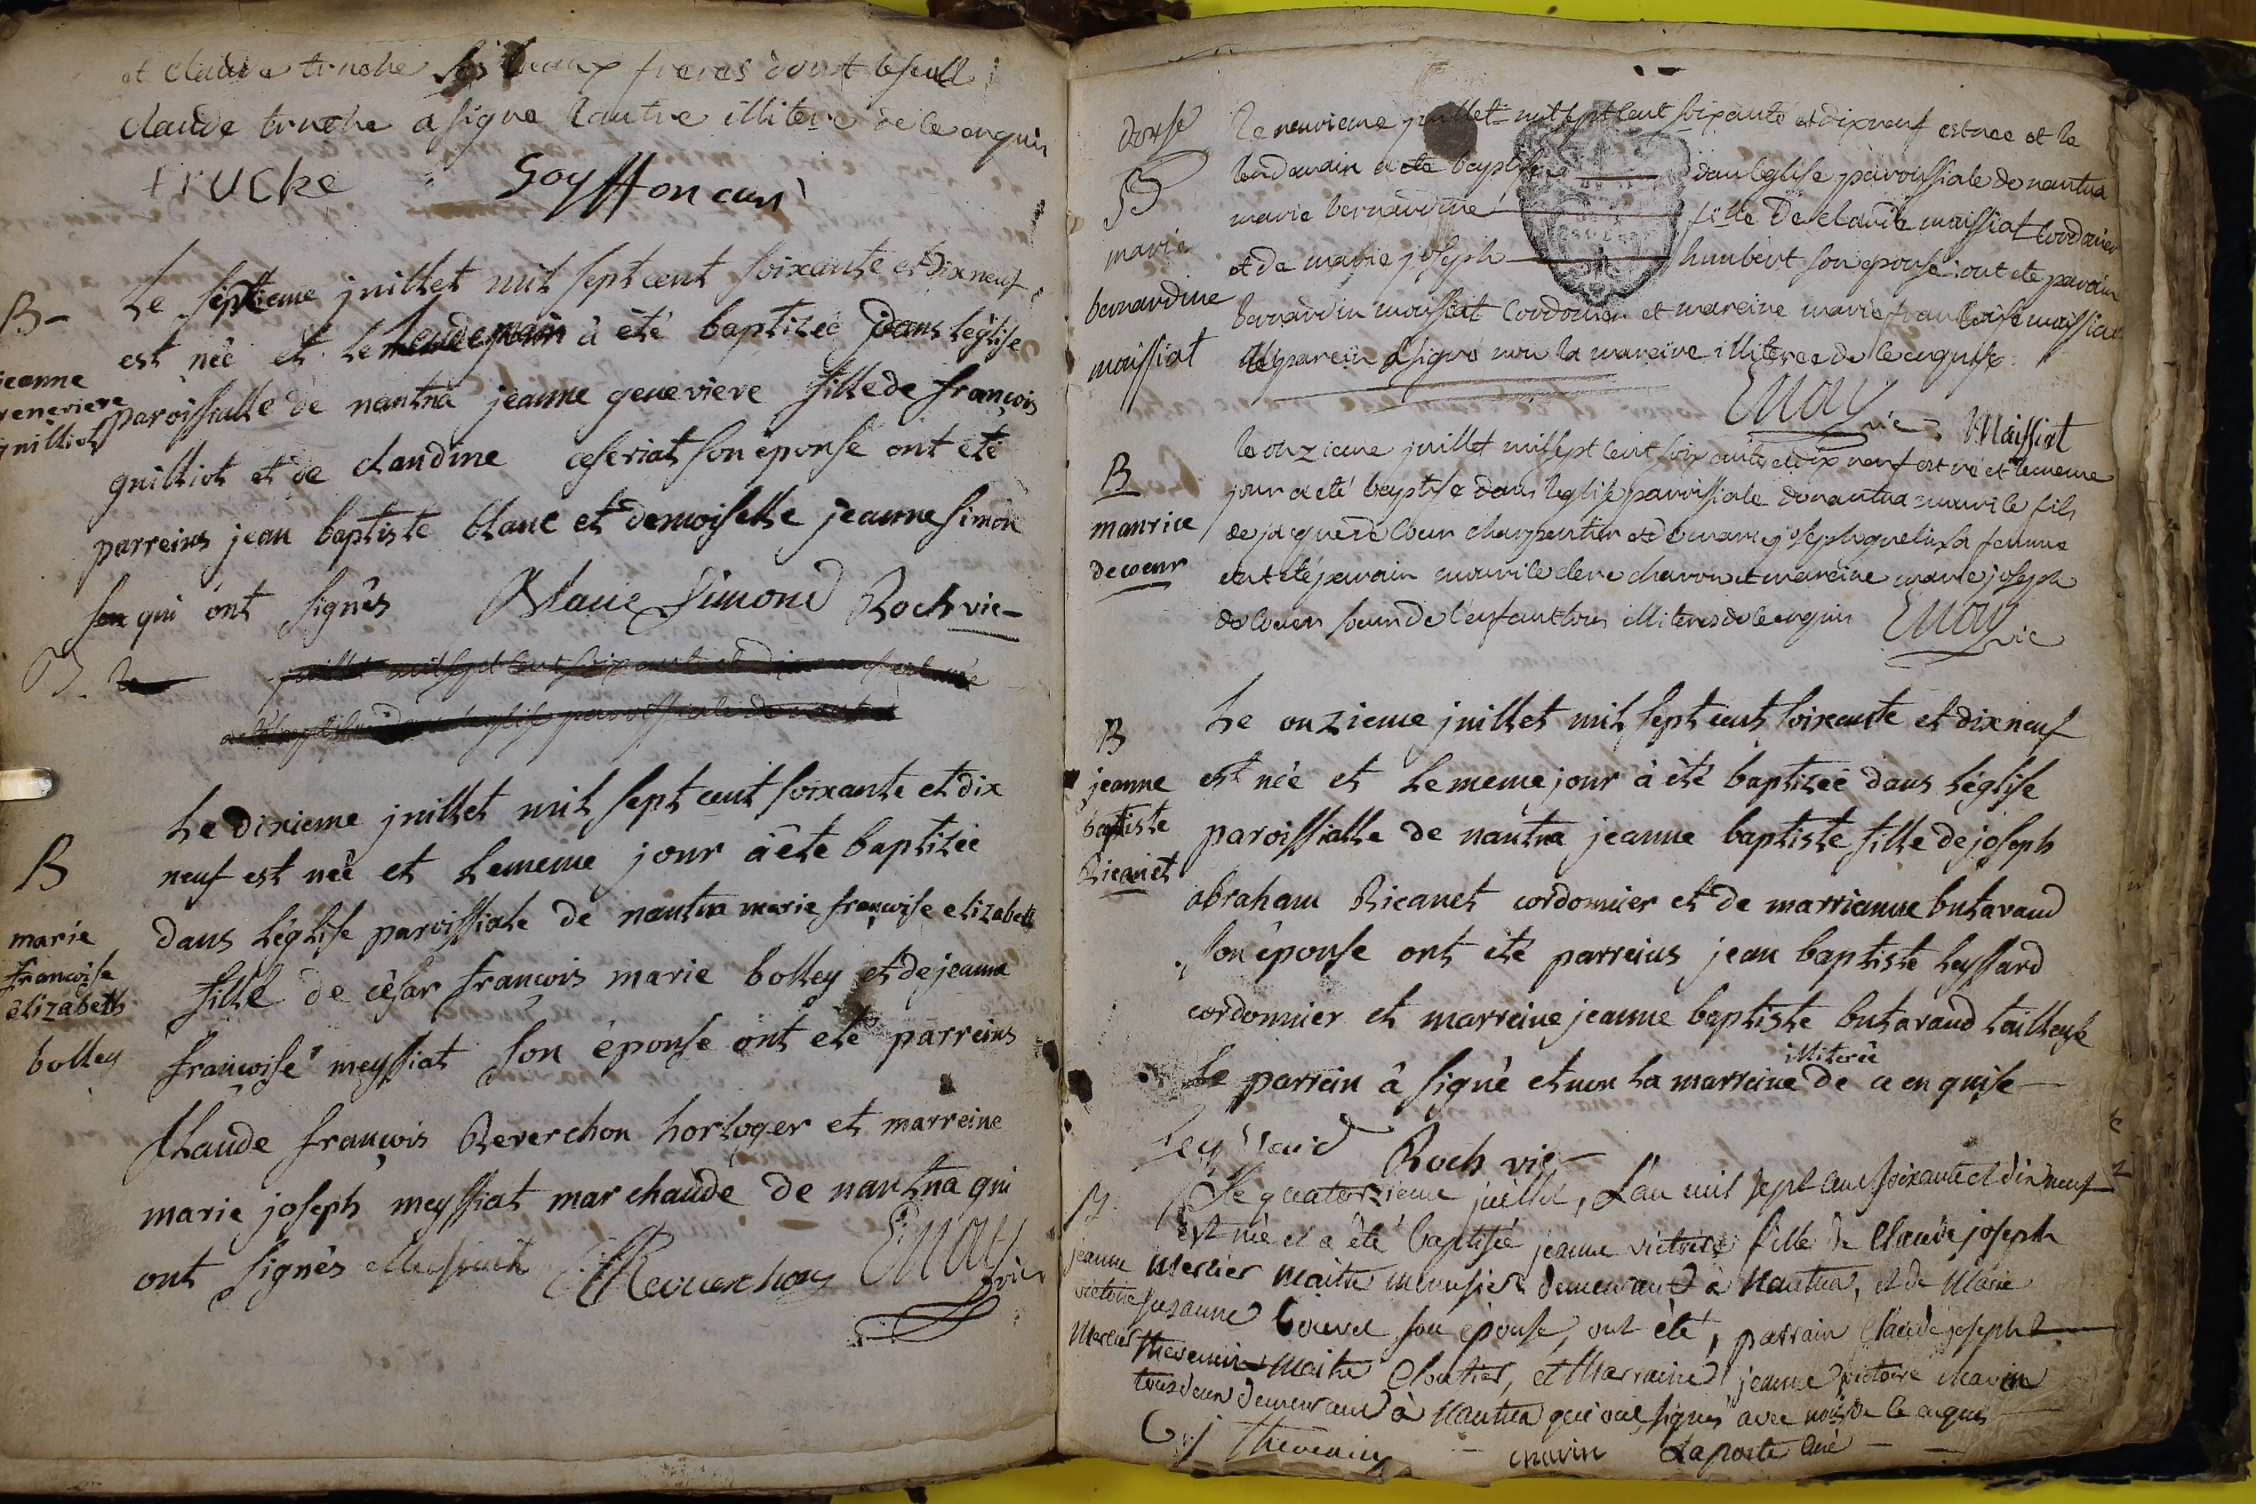 et claude truche ses beaux freres dont le seull
claude truche a signe lautre illiteré de ce enquis
trucke Goyffon curé
B-
jeanne
genevieve
guilliot
Le septieme juillet mil sept cent soixante et dix neuf
est née et le lendemain à été baptizée dans léglise
paroissialle de nantua jeanne genevieve fille de françois
guilliot et de claudine ceseriat son épouse ont été
parreins jean baptiste blanc et demoiselle jeanne simon
qui ont signés Blanc Simond Roch vic-
B. Le
juillet mil sept cent soixante et dix neuf est née
a été baptisée dans leglise paroissiale de nantua
B
marie
francoise
élizabeth
bolley
Le dixieme juillet mil sept cent soixante et dix
neuf est née et le meme jour à été baptizée
dans léglise paroissiale de nantua marie françoise elizabeth
fille de césar françois marie bolley et de jeanne
françoise meyssiat son épouse ont eté parreins
Claude françois Reverchon horloger et marreine
marie joseph meyssiat marchande de nantua qui
ont signés Messiat Reverchon Emay vic
dorse
B
marie
bernardine
maissiat
le neuvieme juillet mil sept cent soixante et dix neuf est nee et le
lendemain a été baptisé dans leglise paroissiale de nantua
marie bernardine fille de claude maissiat cordonier
et de marie joseph humbert son epouse: ont ete parain
bernardin maissiat cordonier et mareine marie francoise maissiat
le parein a signé non la mareine illiteree de ce enquise
Emay vic Maissiat
B
maurice
decoeur
le onzieme juillet mil sept cent soixante et dix neuf est né et le meme
jour a eté baptisé dans leglise paroissiale de nantua maurice fils
de jacque de coeur charpentier et de marie joseph quelin sa femme
ont eté parain maurice clere charon et mareine marie joseph
de coeur soeur de l'enfant tous illiterés de ce enquis Emay vic
B
jeanne
baptiste
Ricanet
Le onzieme juillet mil sept cent soixante et dix neuf
est née et le meme jour à été baptizée dans léglise
paroissialle de nantua jeanne baptiste fille de joseph
abraham Ricanet cordonnier et de marrianne butavand
son épouse ont eté parreins jean baptiste leyssard
cordonnier et marreine jeanne baptiste butavand tailleuse
le parrein â signé et non la marreine illiterée de ce enquise
Leyssard Roch vic-
B.
jeanne
victoire
Mercier
Le quatorzieme juillet, L'an mil sept cent soixante et dix neuf
est née et a été baptisée jeanne victoire fille de Claude joseph
Mercier maitre menusier demeurant à Nantua, et de Marie
suzanne bouvet son épouse, ont été, parrain Claude joseph
thevenin maitre cloutier, et Marraine jeanne victoire chavin
tous deux demeurant à Nantua qui ont signés avec nous de ce enquis
C j Thevenin chavin Laporte curé